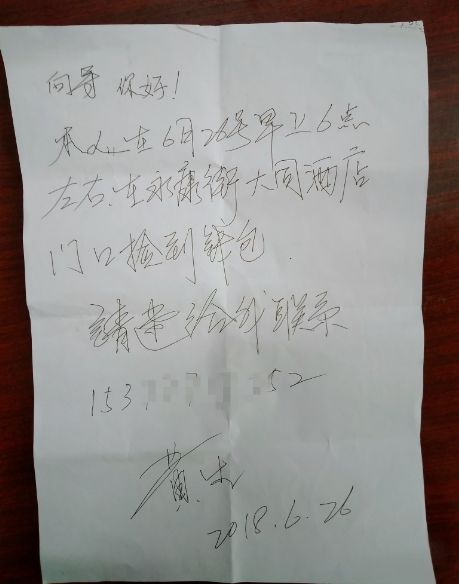 向导 你好！
本人在6月26号早上6点
左右.在永康街大同酒店
门口捡到钱包.
请速给我联系
153 7 52
黄
2018.6.26